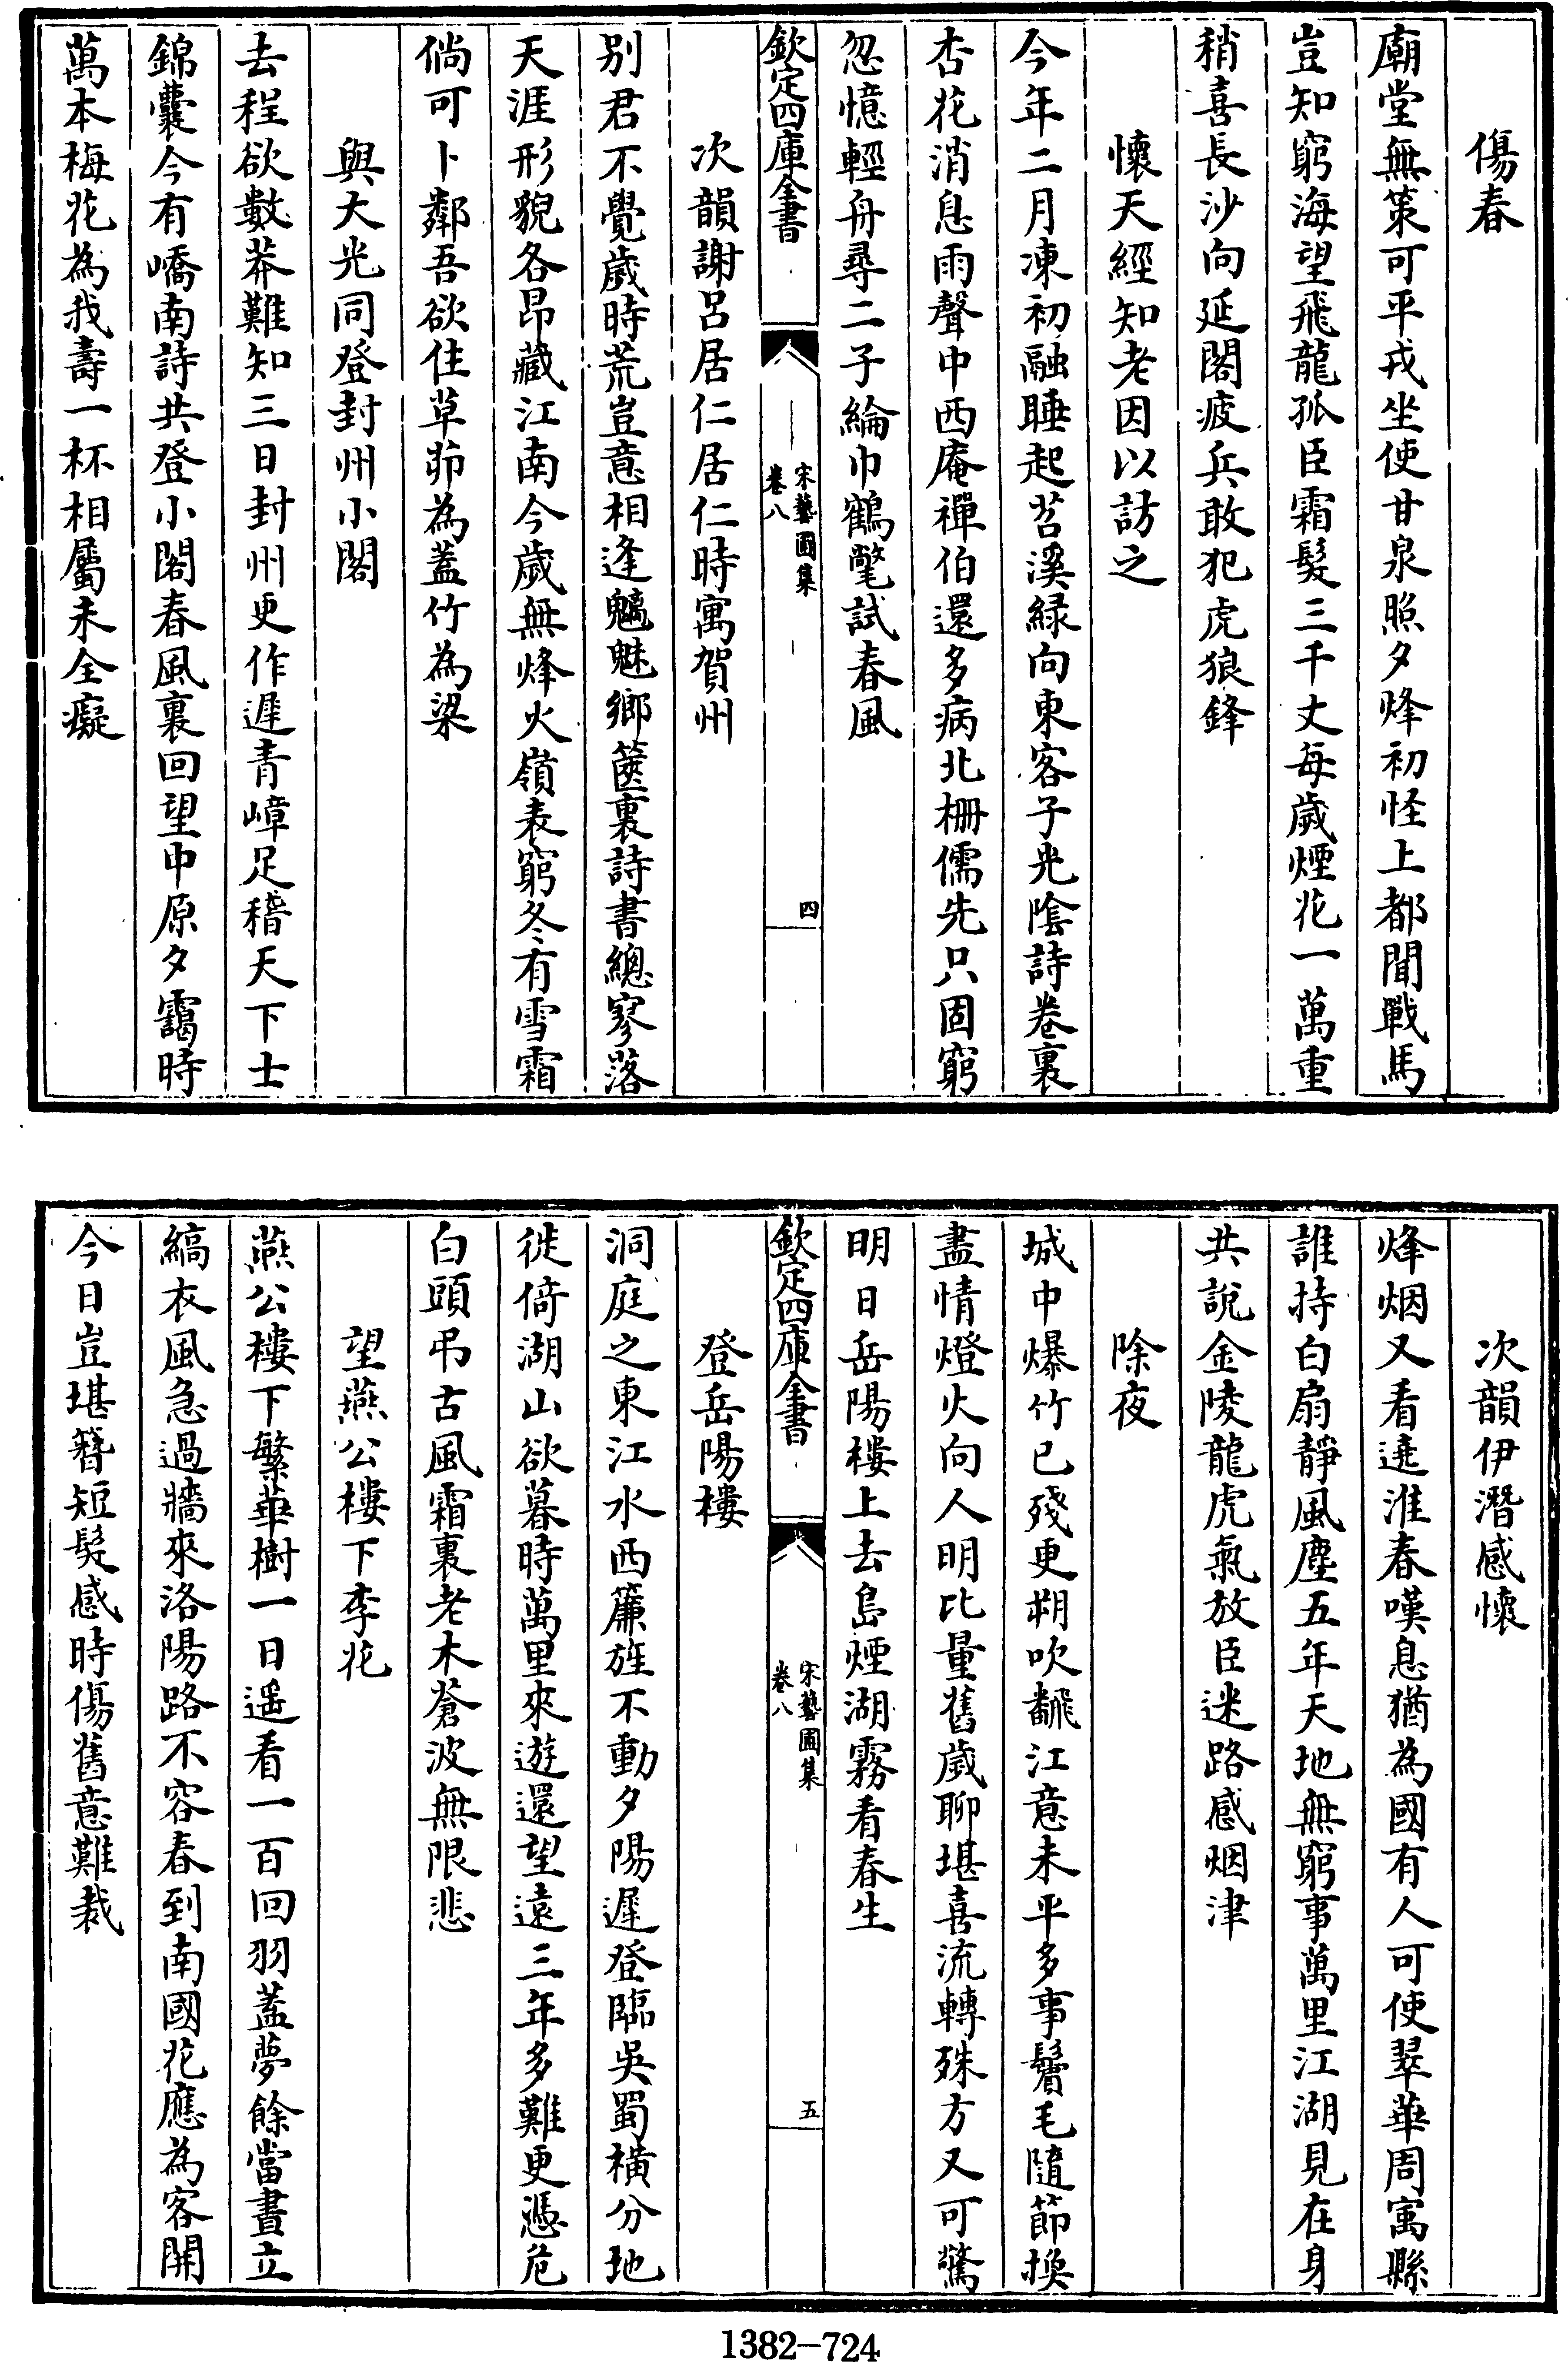 傷春
廟堂無策可平戎坐使甘泉照夕烽初怪上都聞戰馬
豈知窮海望飛龍孤臣霜髮三千丈每歲煙花一萬重
稍喜長沙向延閣疲兵敢犯虎狼鋒
懷天經知老因以訪之
今年二月凍初融睡起苕溪緑向東客子光陰詩卷裏
杏花消息雨聲中西庵禪伯還多病北柵儒先只固窮
忽憶輕舟尋二子綸巾鶴氅試春風
欽定四庫全書
宋藝圃集
卷八
四
次韻謝呂居仁居仁時寓賀州
别君不覺歲時荒豈意相逢魑魅鄉篋裏詩書總寥落
天涯形貌各昂藏江南今歲無烽火嶺表窮冬有雪霜
倘可卜鄰吾欲住草茆為蓋竹為梁
與大光同登封州小閣
去程欲數莽難知三日封州更作遲青嶂足稽天下士
錦囊今有嶠南詩共登小閣春風裏回望中原夕靄時
萬本梅花為我壽一杯相屬未全癡
次韻伊潛感懷
烽烟又看遶淮春嘆息猶為國有人可使翠華周寓縣
誰持白扇靜風塵五年天地無窮事萬里江湖見在身
共說金陵龍虎氣放臣迷路感烟津
除夜
城中爆竹已殘更朔吹飜江意未平多事鬢毛隨節換
盡情燈火向人明比量舊歲聊堪喜流轉殊方又可驚
明日岳陽樓上去島煙湖霧看春生
欽定四庫全書
宋藝圃集
卷八
五
登岳陽樓
洞庭之東江水西簾旌不動夕陽遲登臨吳蜀橫分地
徙倚湖山欲暮時萬里來遊還望遠三年多難更憑危
白頭弔古風霜裏老木蒼波無限悲
望燕公樓下李花
燕公樓下繁華樹一日遥看一百回羽蓋夢餘當晝立
縞衣風急過牆來洛陽路不容春到南國花應為客開
今日豈堪簪短髮感時傷舊意難裁
1382-724